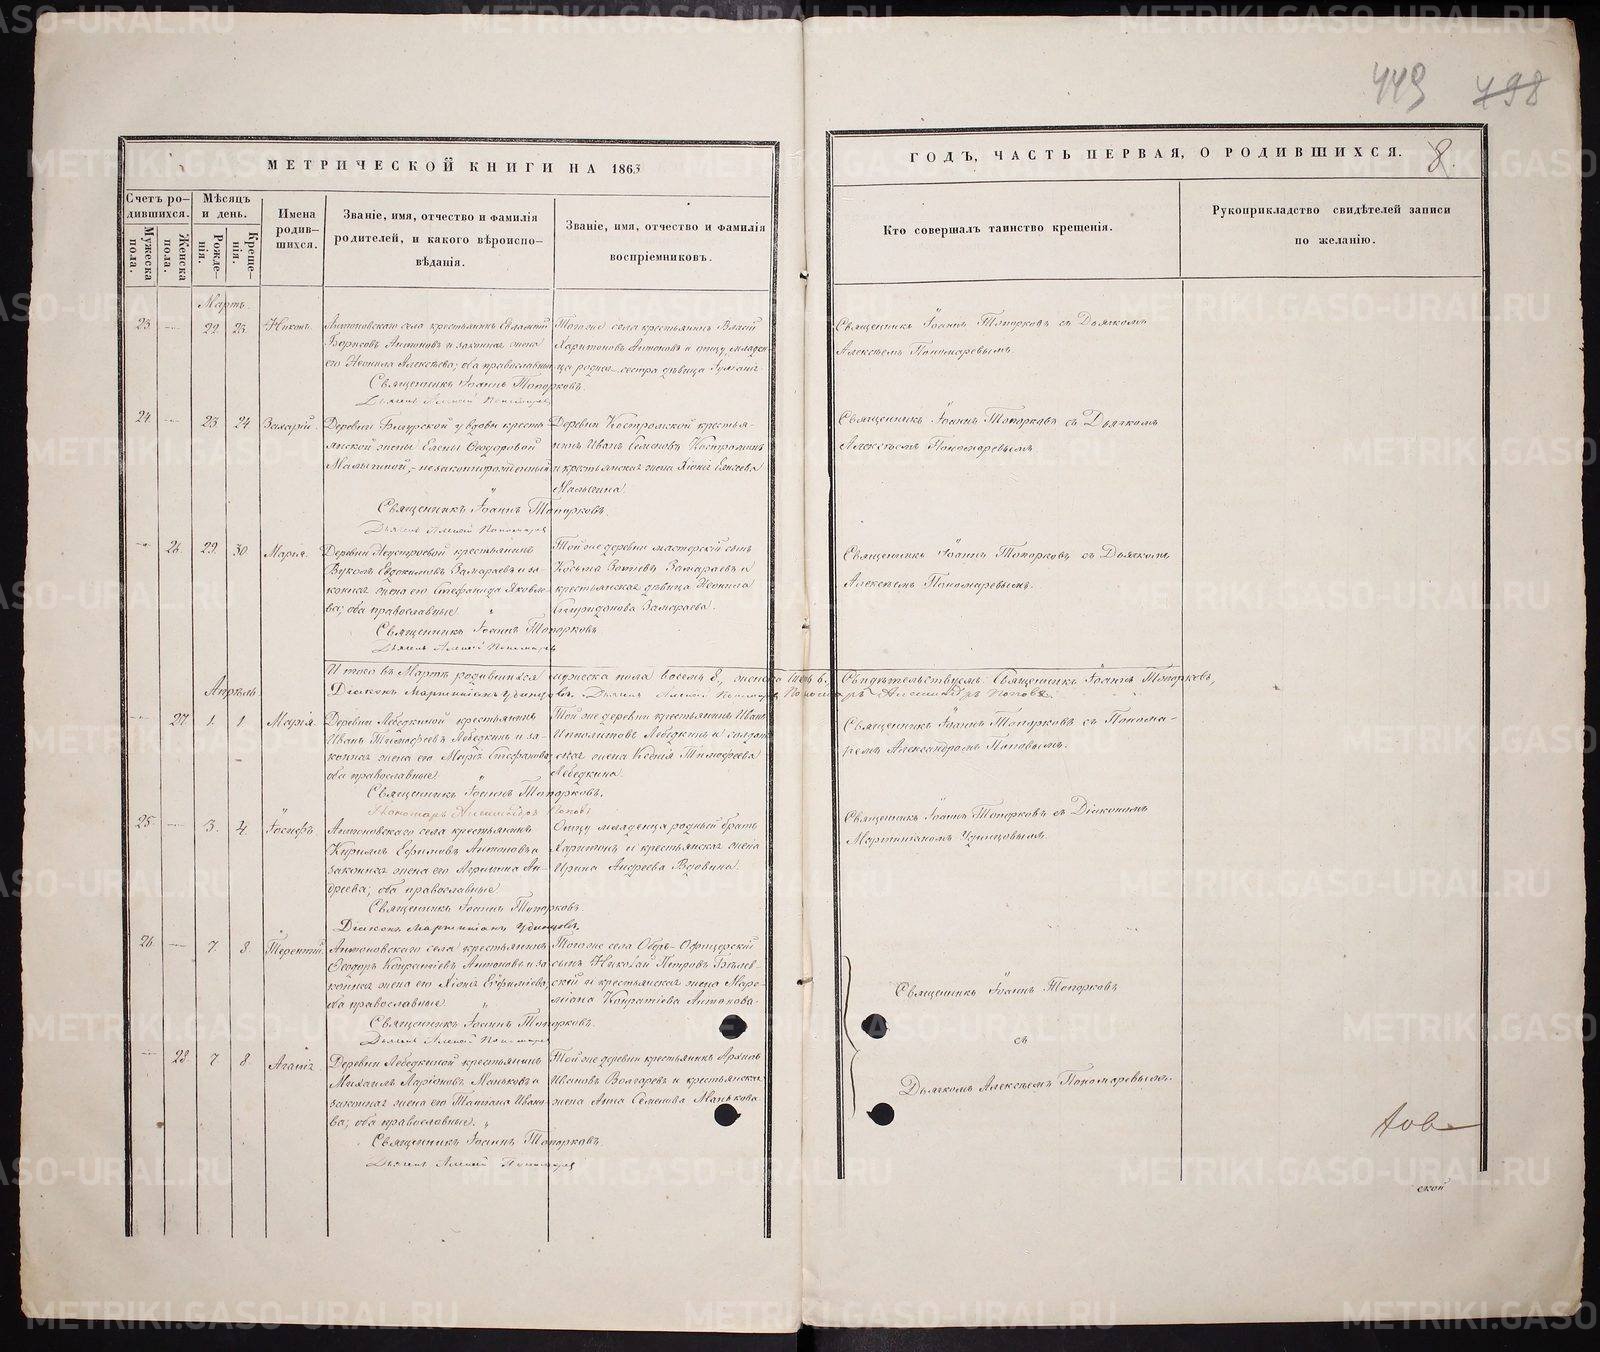 449 798
МЕТРИЧЕСКОЙ КНИГИ НА 1863
ГОДЪ, ЧАСТЬ ПЕРВАЯ, О РОДИВШИХСЯ. 8.
Счетъ ро-
дившихся.
Мужеска
пола.
Женска
пола.
Мѣсяцъ
и день.
Рожде-
нія.
Креще-
нія.
Имена
родив-
шихся.
Званіе, имя, отчество и фамилія
родителей, и какого вѣроиспо-
вѣданія.
Званіе, имя, отчество и фамилія
воспріемниковъ.
Кто совершалъ таинство крещенія.
Рукоприкладство свидѣтелей записи
по желанію.
Мартъ.
23 — 22. 23. Никонъ.
Антоновскаго села крестьянинъ Евлампій
Борисовъ Антоновъ и законная жена
его Неонила Алексѣева; оба православные
Священникъ Іоаннъ Топорковъ.
Дьячекъ Алексѣй Пономаревъ
Того же села крестьянинъ Власій
Харитоновъ Антоновъ и отцу младен-
ца родная сестра дѣвица
Священникъ Іоаннъ Топорковъ съ Дьячкомъ
Алексѣемъ Пономаревымъ
24 — 23 24 Захарій.
Деревни у вдовы кресть-
янской жены Елены Ѳеодоровой
Малыгиной, — незаконнорожденный
Священникъ Іоаннъ Топорковъ.
Дьячекъ Алексѣй Пономаревъ
Деревни Костромской крестья-
нинъ Иванъ Семеновъ Костроминъ
и крестьянская жена Хіонія Елисеева
Малыгина.
Священникъ Іоаннъ Топорковъ съ Дьячкомъ
Алексѣемъ Пономаревымъ
— 26. 29. 30. Марія.
Деревни крестьянинъ
Вуколъ Евдокимовъ Замараевъ и за-
конная жена его Стефанида Яковле-
ва; оба православные
Священникъ Іоаннъ Топорковъ
Дьячекъ Алексѣй Пономаревъ
Той же деревни мастерскій сынъ
Козьма Замараевъ и
крестьянская дѣвица Неонила
Спиридонова Замараева.
Священникъ Іоаннъ Топорковъ съ Дьячкомъ
Алексѣемъ Пономаревымъ.
Итого въ Мартѣ родившихся мужеска пола восемь 8, женска шесть 6. Свидѣтельствуемъ: Священникъ Іоаннъ Топорковъ,
Діаконъ Мартиніанъ Удинцовъ. Дьячекъ Алексѣй Пономаревъ Пономарь Александръ Поповъ.
Апрѣль
— 27 1. 1. Марія.
Деревни Лебедкиной крестьянинъ
Иванъ Тимофеевъ Лебедкинъ и за-
конная жена его Марія Стефанова,
оба православные
Священникъ Іоаннъ Топорковъ.
Пономарь Александръ Поповъ
Той же деревни крестьянинъ Иванъ
Ипполитовъ Лебедкинъ и солдат-
ская жена Ксенія Тимофеева
Лебедкина.
Священникъ Іоаннъ Топорковъ съ Понома-
ремъ Александромъ Поповымъ.
25 — 3. 4. Іосифъ
Антоновскаго села крестьянинъ
Кирилъ Ефимовъ Антоновъ и
законная жена его Агрипина Ан-
дреева; оба православные
Священникъ Іоаннъ Топорковъ
Діаконъ Мартиніанъ Удинцовъ.
Отцу младенца родный братъ
Харитонъ и крестьянская жена
Ирина Андреева Вдовина.
Священникъ Іоаннъ Топорковъ съ Діакономъ
Мартиніаномъ Удинцовымъ.
26 — 7. 8. Терентій.
Антоновскаго села крестьянинъ
Ѳеодоръ Антоновъ и за-
конная жена его Хіонія
оба православные
Священникъ Іоаннъ Топорковъ.
Дьячекъ Алексѣй Пономаревъ
Того же села Оберъ-Офицерскій
сынъ Николай Петровъ Бѣлев-
ской и крестьянская жена Маре-
міана Антонова.
Священникъ Іоаннъ Топорковъ
съ
Дьячкомъ Алексѣемъ Пономаревымъ.
— 28 7 8. Агапія.
Деревни Лебедкиной крестьянинъ
Михаилъ Ларіоновъ Маньковъ и
законная жена его Татіана Ивано-
ва; оба православные.
Священникъ Іоаннъ Топорковъ.
Дьячекъ Алексѣй Пономаревъ
Той же деревни крестьянинъ Архипъ
Ивановъ Волгаревъ и крестьянская
жена Анна Семенова Манькова.
ской
METRIKI.GASO-URAL.RU